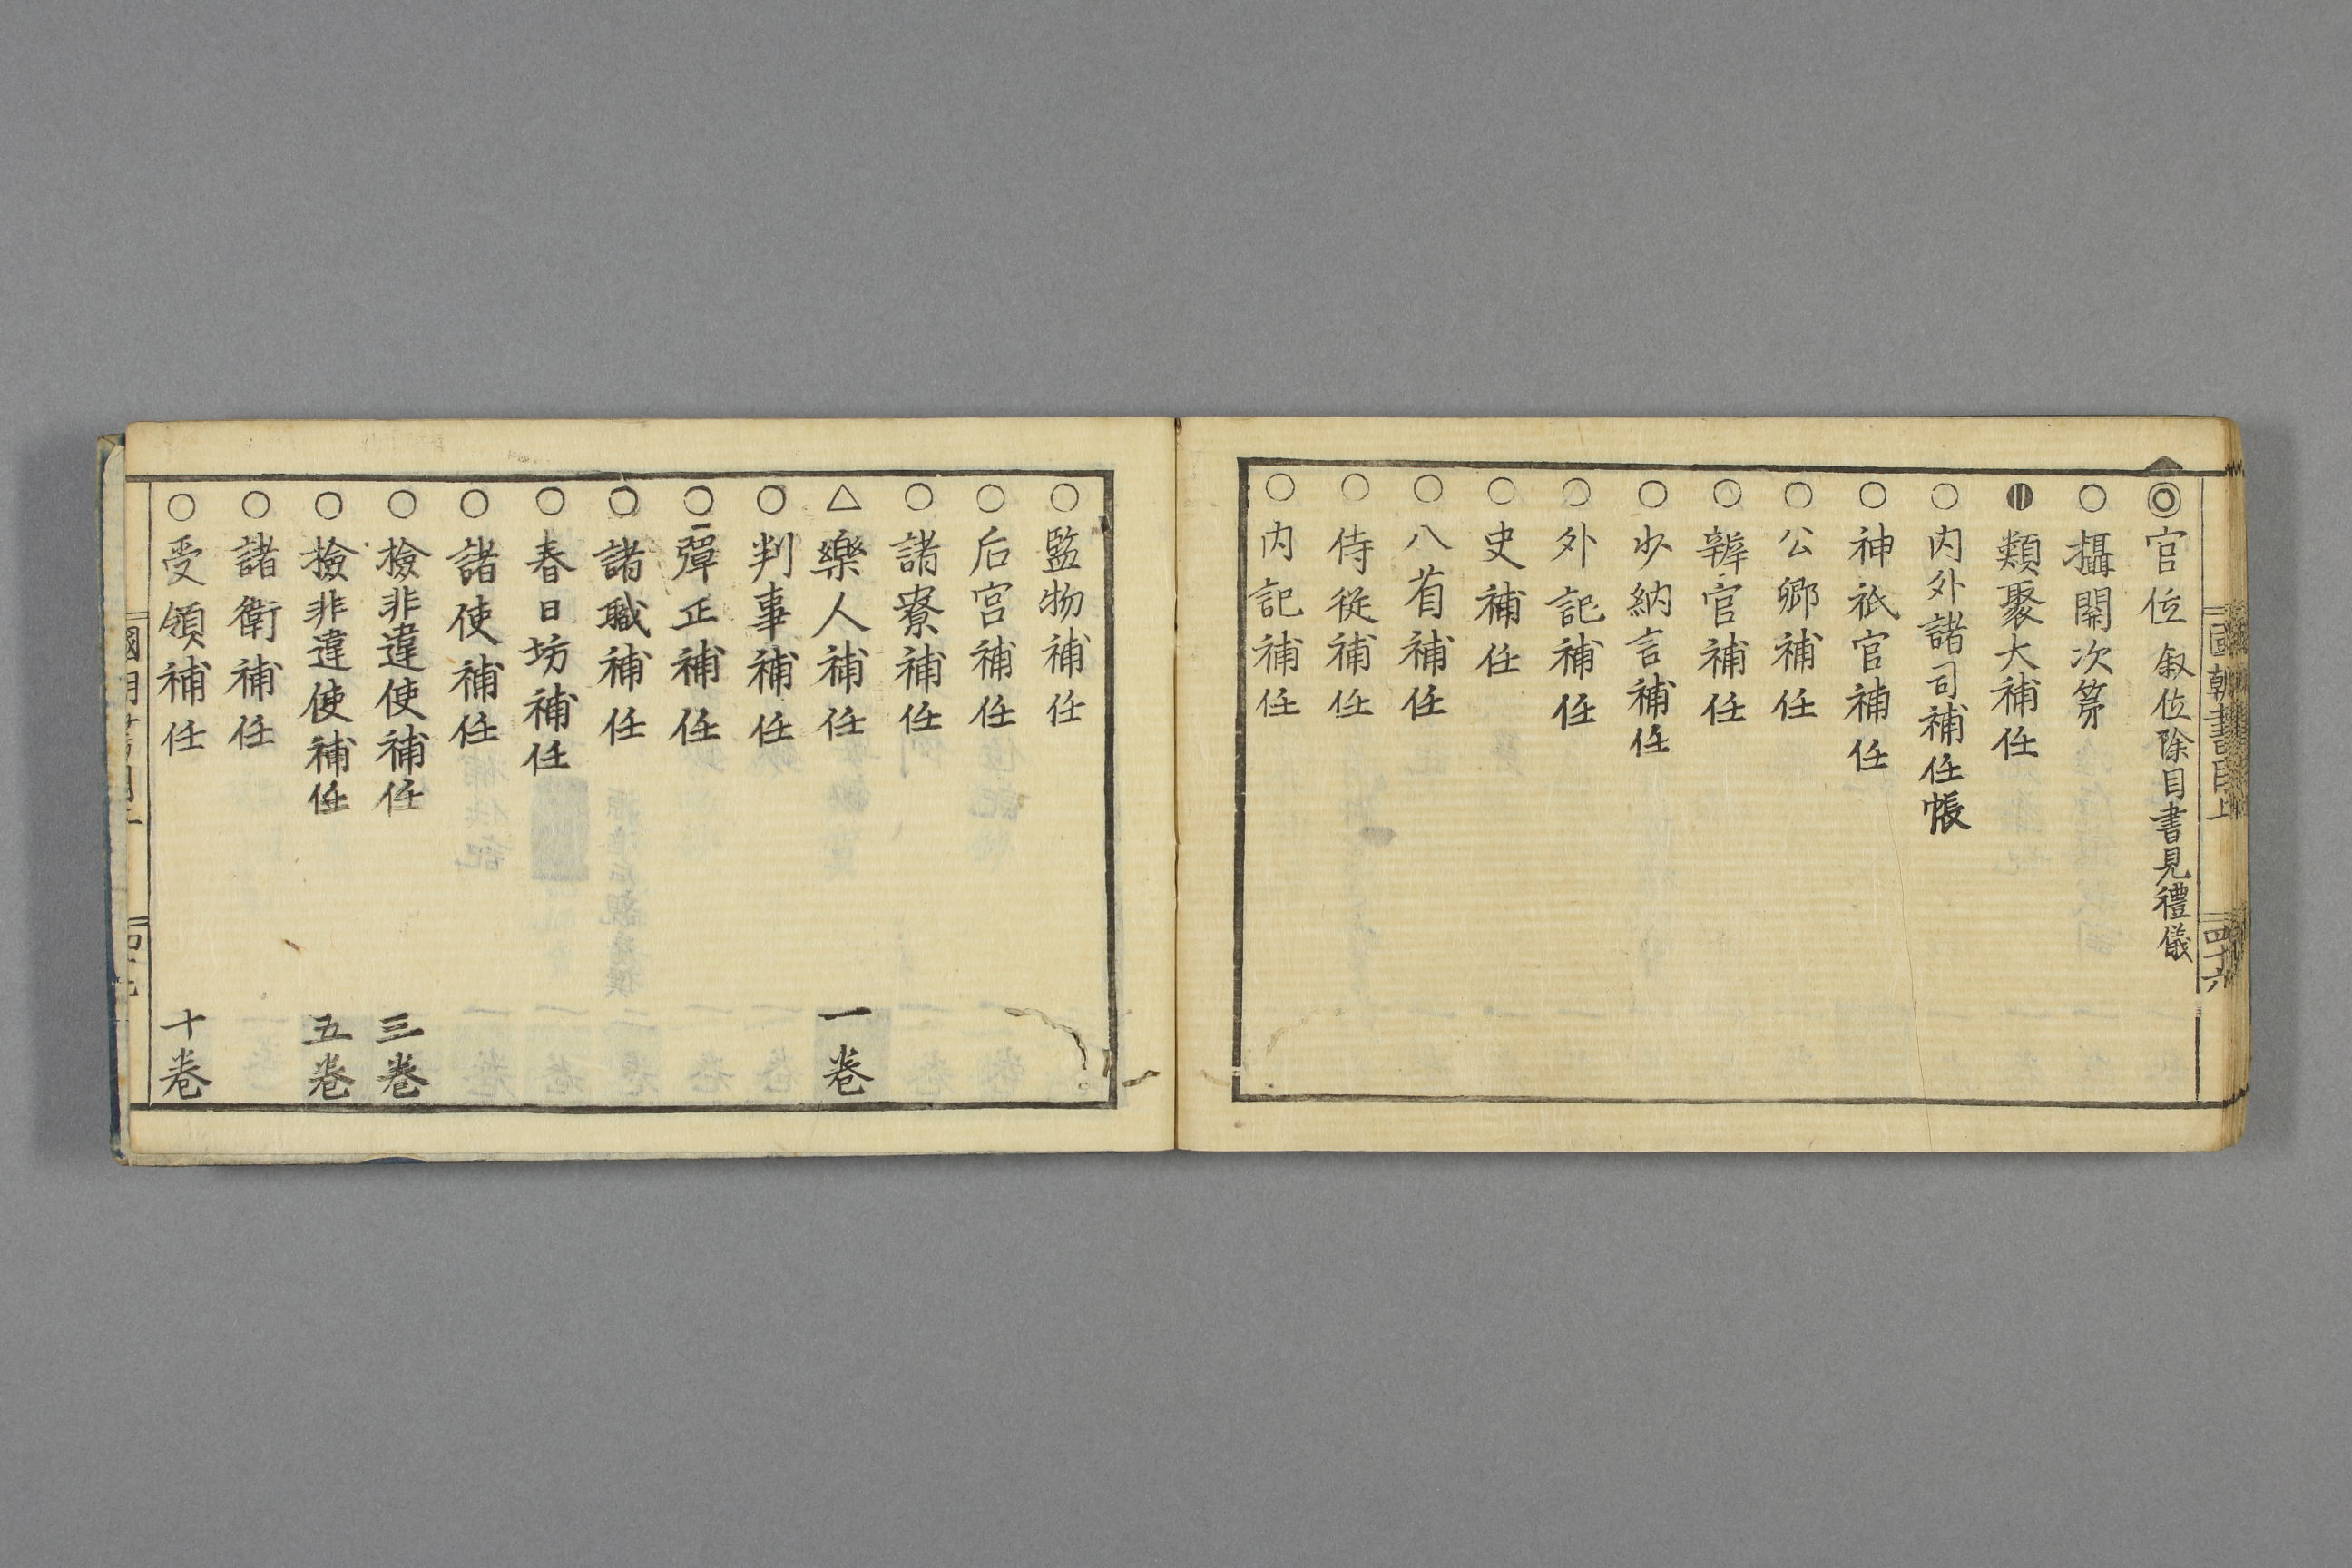 國朝書目上
四十六
◎官位 叙位除目書見禮儀
○攝關次第
類聚大補任
○内外諸司補任帳
○神祇官補任
○公卿補任
○辨官補任
○少納言補任
○外記補任
○史補任
○八省補任
○侍從補任
○内記補任
○監物補任
○后宮補任
○諸寮補任
△樂人補任 一卷
○判事補任
○彈正補任
○諸職補任
○春日坊補任
○諸使補任
○檢非違使補任 三卷
○檢非違使補任 五卷
○諸衛補任
○受領補任 十卷